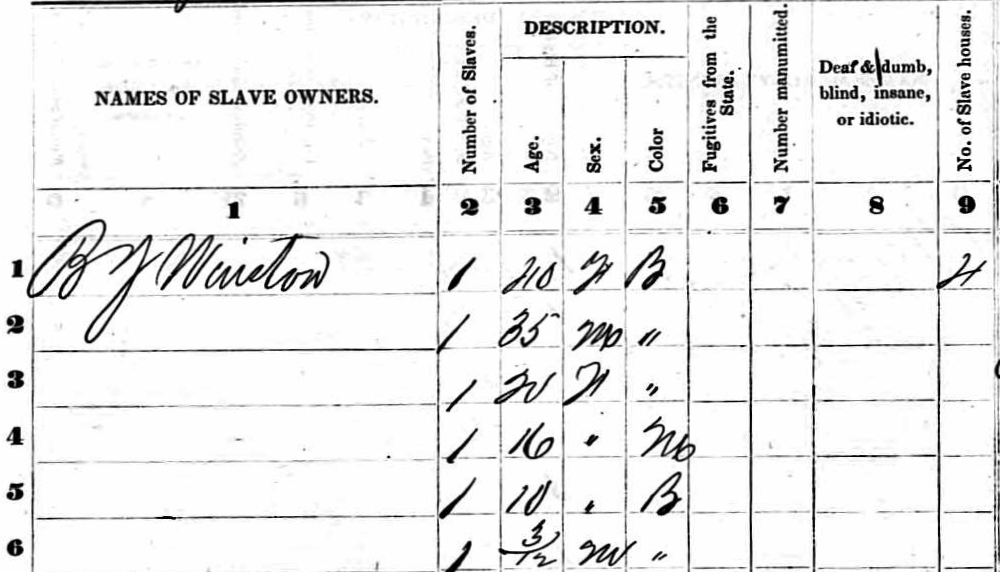 NAMES OF SLAVE OWNERS. Number of Slaves. DESCRIPTION. Fugitives from the State. Number manumitted. Deaf & dumb, blind, insane, or idiotic. No. of Slave houses.
Age. Sex. Color
1 2 3 4 5 6 7 8 9
1 B J Winston 1 40 F B 4
2 1 35 M "
3 1 20 F "
4 1 16 " M
5 1 10 " B
6 1 3/12 M "